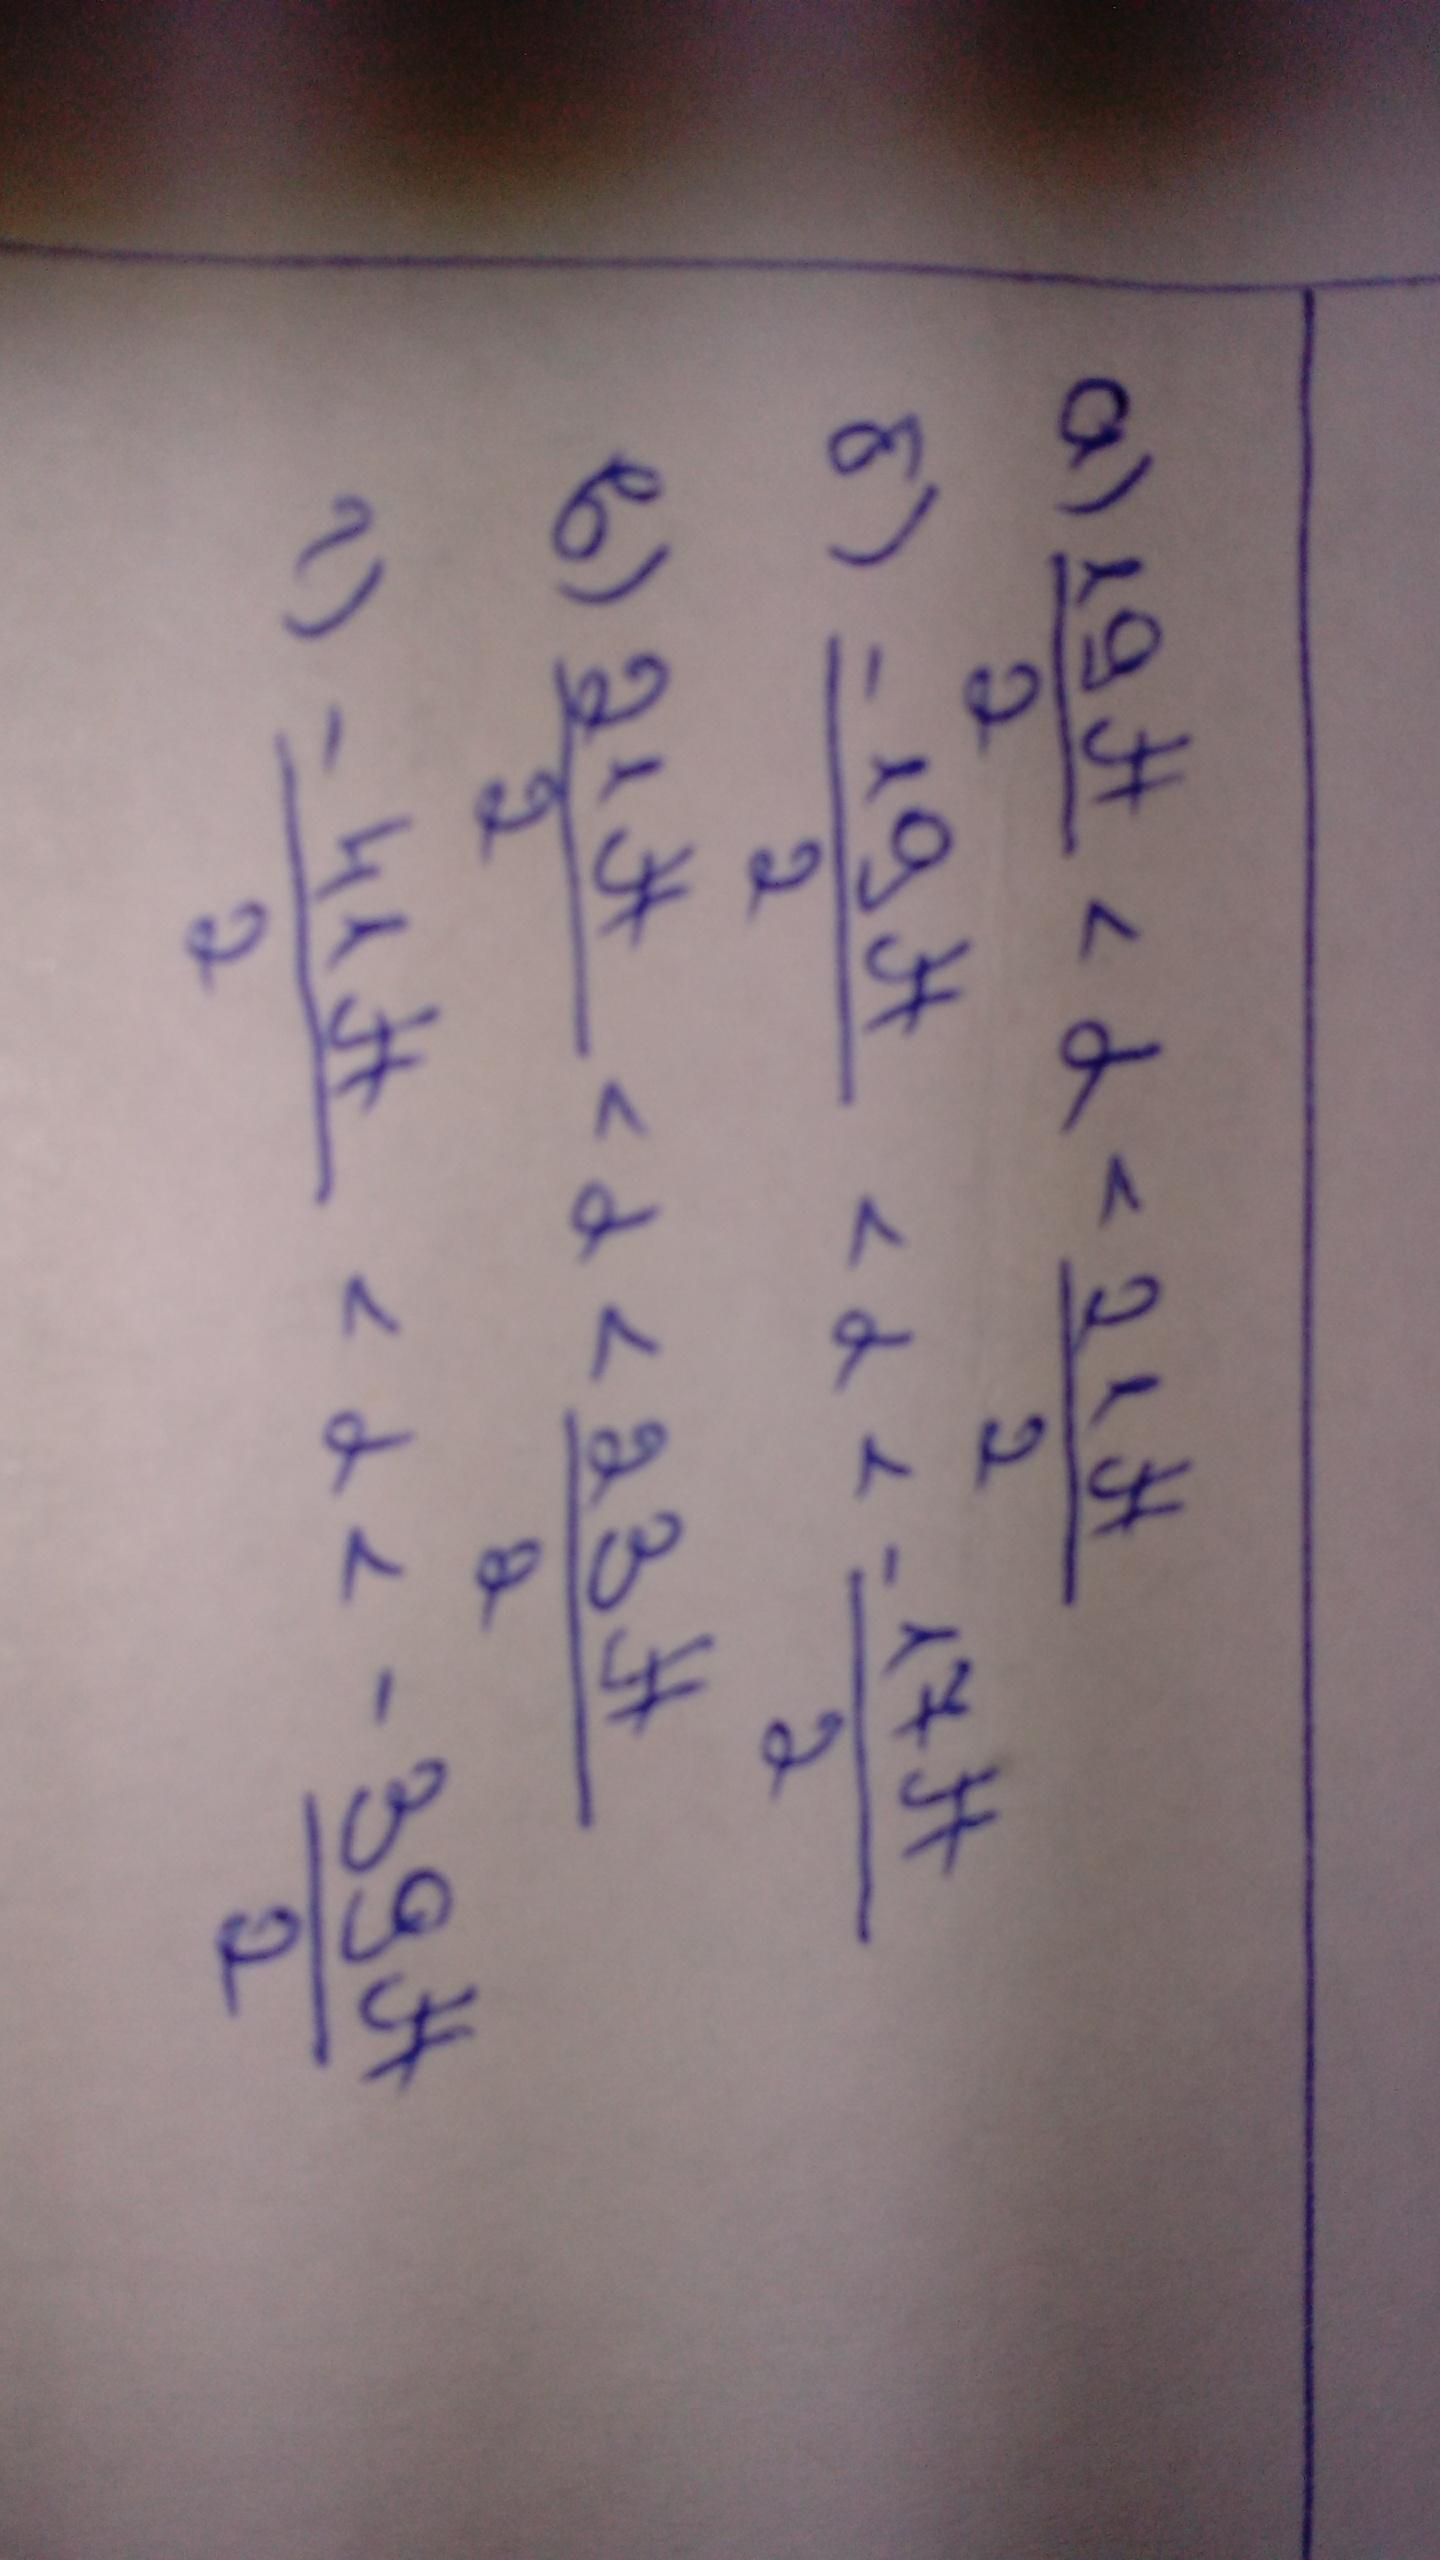 а) 19π/2 < α < 21π/2
б) -19π/2 < α < -17π/2
в) 21π/2 < α < 23π/2
г) -41π/2 < α < -39π/2